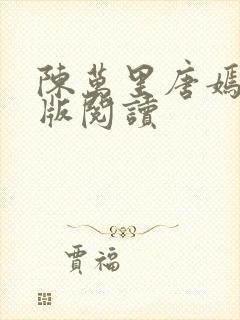 陳萬里唐嫣
版閱讀
賈福